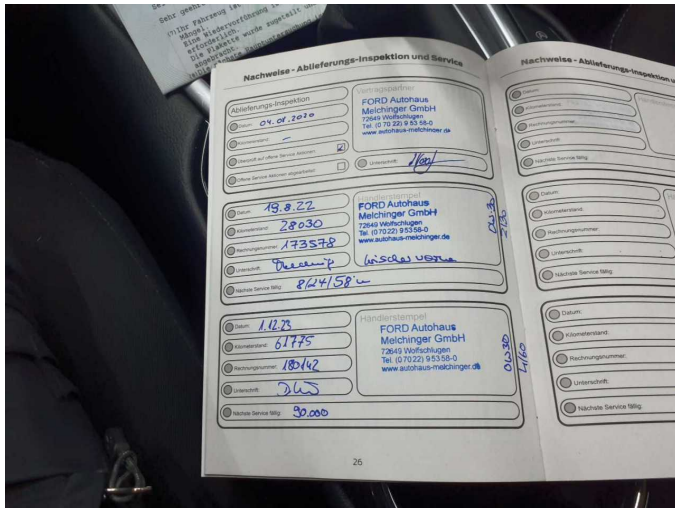 Sehr geehr
(1) Ihr Fahrzeug ist
Mängel.
Eine Wiedervorführung i
erforderlich.
Die Plakette wurde zugeteilt und
angebracht.
Hauptuntersuchung
Nachweise - Ablieferungs-Inspektion und Service
Ablieferungs-Inspektion
Datum: 04.01.2020
Kilometerstand: -
Überprüft auf offene Service Aktionen:
Offene Service Aktionen abgearbeitet:
Vertragspartner
FORD Autohaus
Melchinger GmbH
72649 Wolfschlugen
Tel. (0 70 22) 9 53 58-0
www.autohaus-melchinger.de
Unterschrift:
Datum: 19.8.22
Kilometerstand: 28030
Rechnungsnummer: 173578
Unterschrift:
Nächste Service fällig: 8/24/58
Händlerstempel
FORD Autohaus
Melchinger GmbH
72649 Wolfschlugen
Tel. (07022) 95358-0
www.autohaus-melchinger.de
0W30
Datum: 1.12.23
Kilometerstand: 61775
Rechnungsnummer: 180142
Unterschrift:
Nächste Service fällig: 90.000
Händlerstempel
FORD Autohaus
Melchinger GmbH
72649 Wolfschlugen
Tel. (07022) 95358-0
www.autohaus-melchinger.de
0W30
4160
26
Nachweise - Ablieferungs-Inspektion u
Datum:
Kilometerstand:
Rechnungsnummer:
Unterschrift:
Nächste Service fällig:
Datum:
Kilometerstand:
Rechnungsnummer:
Unterschrift:
Nächste Service fällig:
Datum:
Kilometerstand:
Rechnungsnummer:
Unterschrift:
Nächste Service fällig: